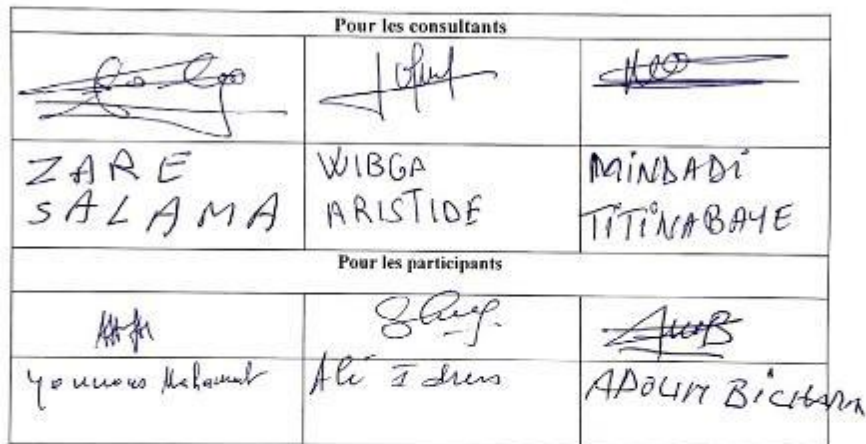 Pour les consultants
ZARE WIBGA MINDADI
SALAMA ARISTIDE TITINABAYE
Pour les participants
Younous Mahamat Ali Idriss ADOUM BICHARA